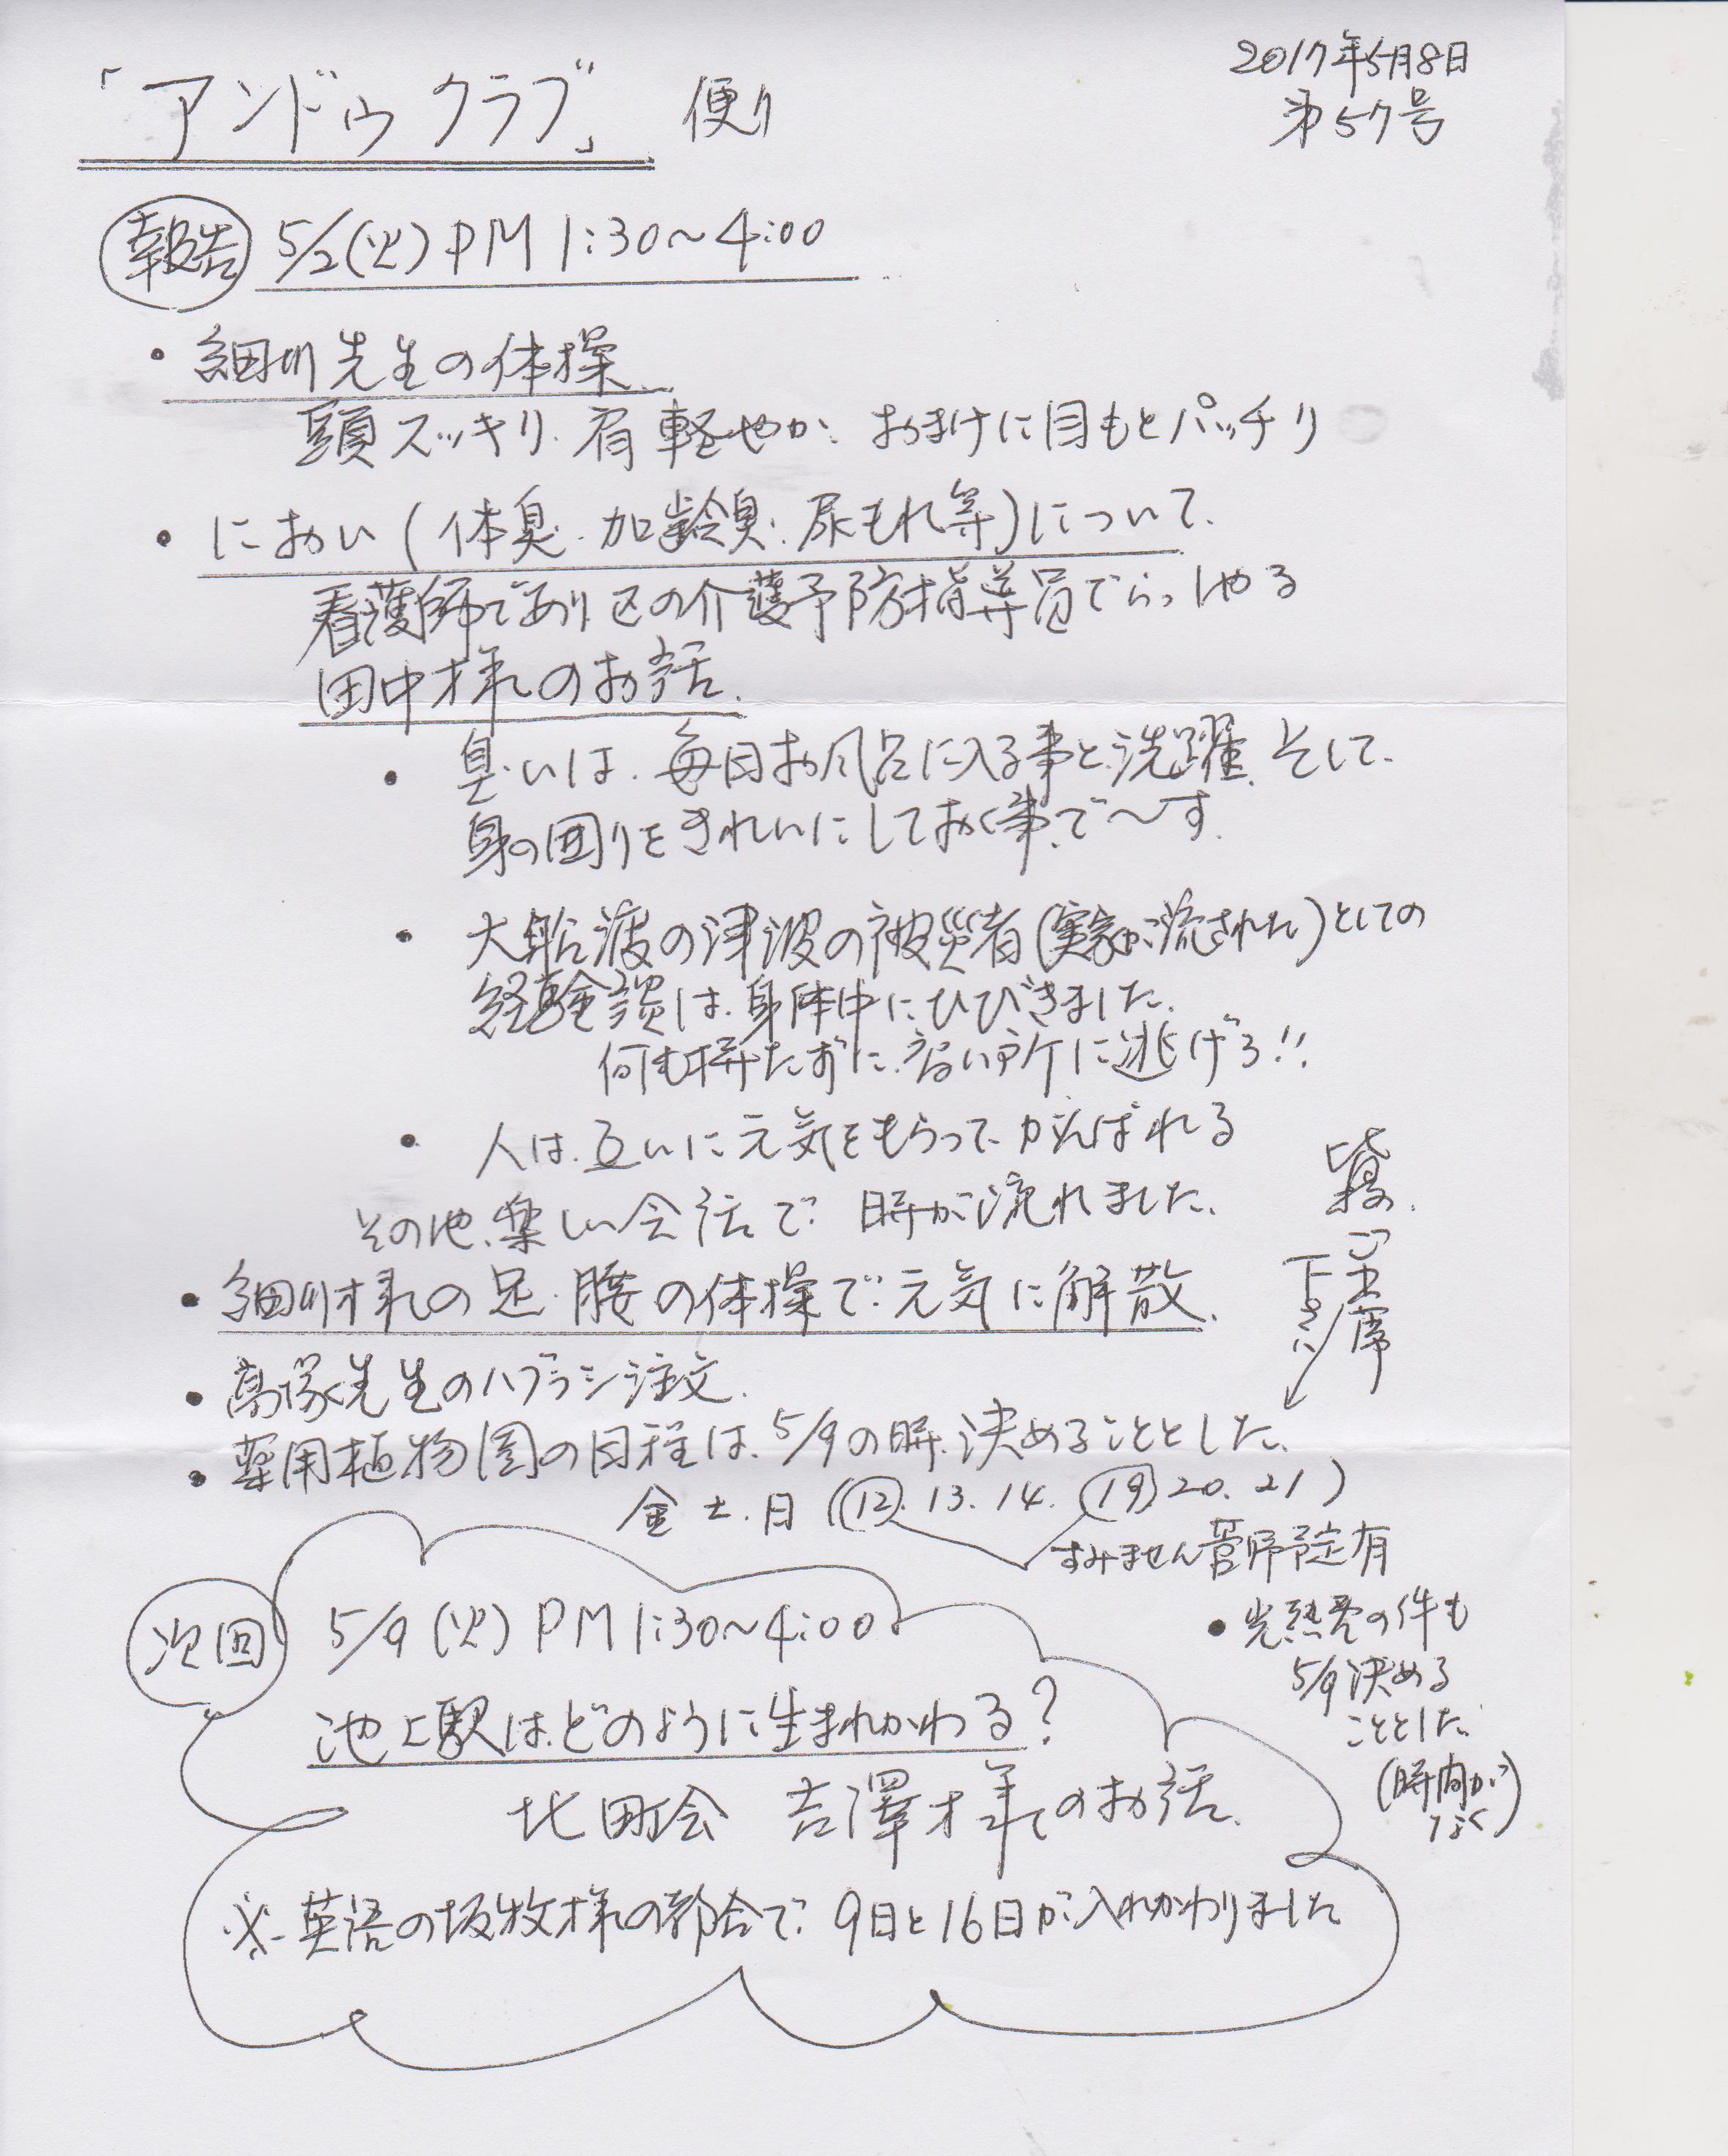 2017年5月8日
第57号
「アンドゥクラブ」便り
報告 5/2(火)PM1:30~4:00
・細川先生の体操
頭スッキリ、肩軽やか、おまけに目もとパッチリ
・におい(体臭・加齢臭・尿もれ等)について、
看護師であり区の介護予防指導員でらっしゃる
田中様のお話、
・臭いは、毎日お風呂に入る事と洗濯、そして、
身の回りをきれいにしておく事で~す。
・大船渡の津波の被災者(実家が流された)としての
経験談は、身体中にひびきました。
何も持たずに、高い所に逃げろ!!
・人は、互いに元気をもらって、がんばれる
その他、楽しい会話で、時が流れました。
・細川様の足・腰の体操で、元気に解散、
・高塚先生のハブラシ注文、
・薬用植物園の日程は、5/9の時、決めることとした、
ご出席
下さい
金 土、日(12、13、14、19 20、21)
すみません菅師予定有
・光熱費の件も
5/9決める
こととした、
(時間が
なく)
次回 5/9(火)PM1:30~4:00
池上駅は、どのように生まれかわる?
北町会 吉澤様のお話、
※英語の坂牧様の都合で、9日と16日が入れかわりました